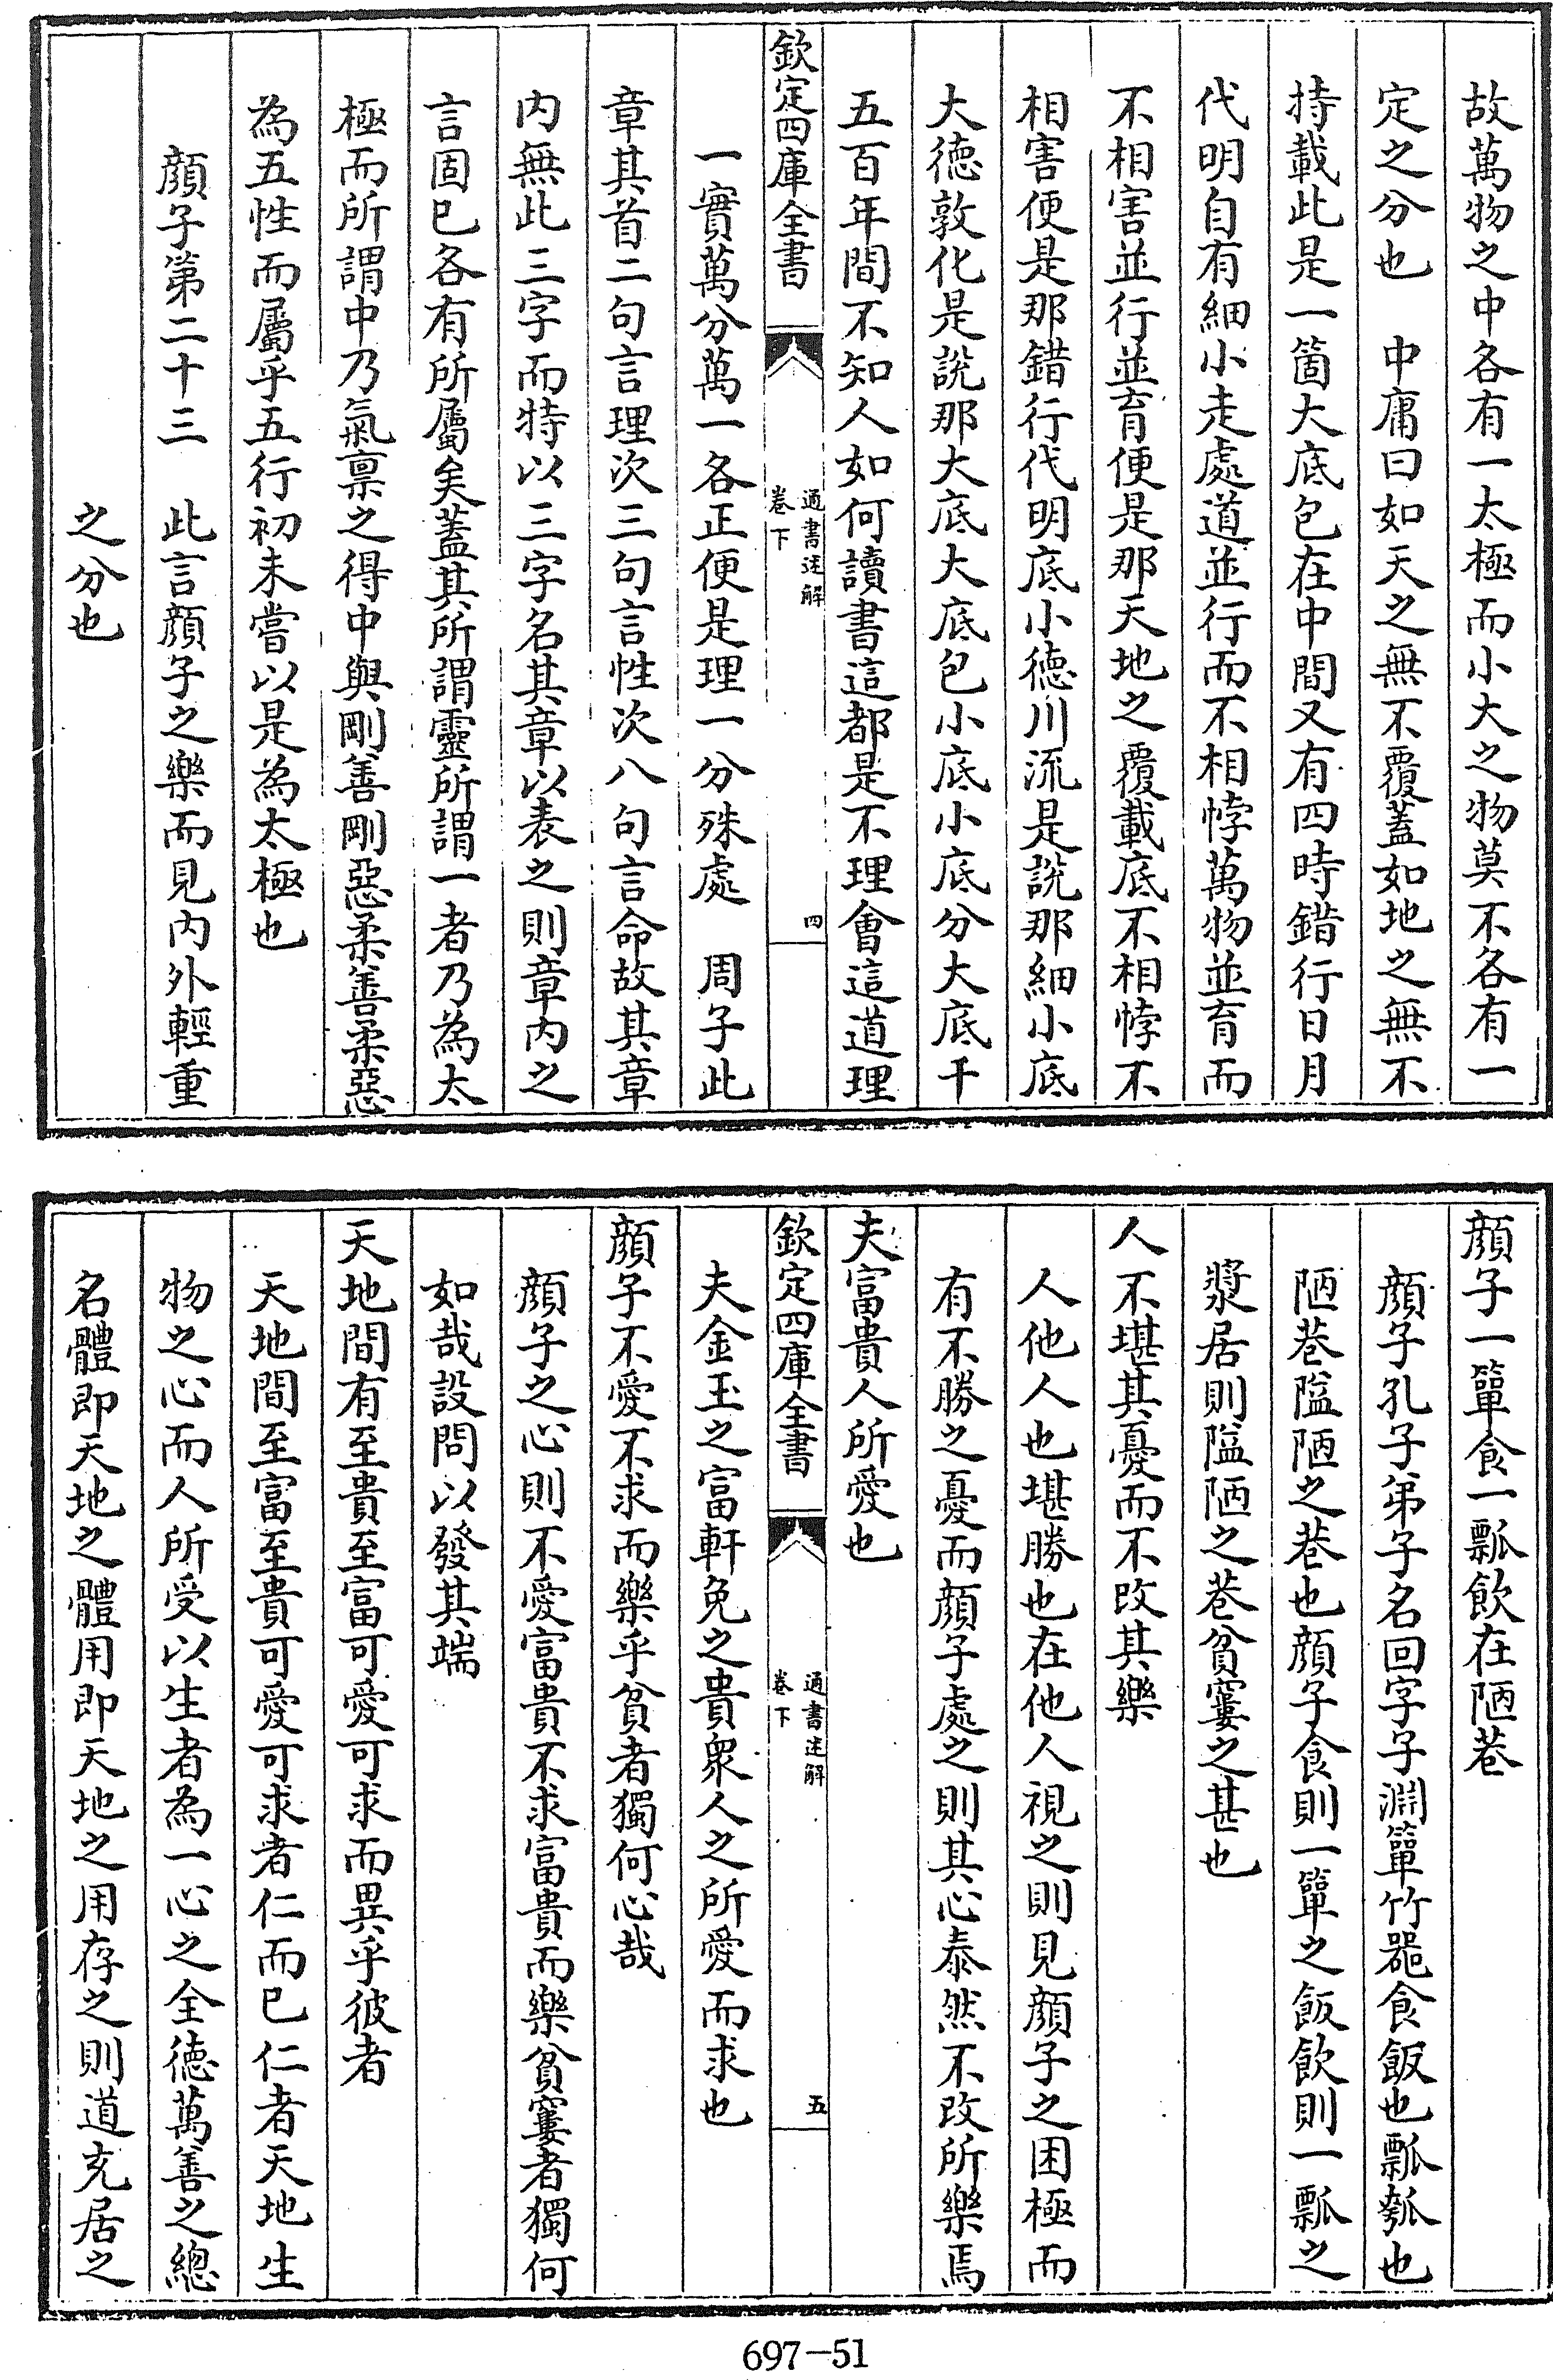 故萬物之中各有一太極而小大之物莫不各有一
定之分也　中庸曰如天之無不覆蓋如地之無不
持載此是一箇大底包在中間又有四時錯行日月
代明自有細小走處道並行而不相悖萬物並育而
不相害並行並育便是那天地之覆載底不相悖不
相害便是那錯行代明底小徳川流是說那細小底
大徳敦化是說那大底大底包小底小底分大底千
五百年間不知人如何讀書這都是不理會這道理
欽定四庫全書
通書述解
卷下
四
一實萬分萬一各正便是理一分殊處　周子此
章其首二句言理次三句言性次八句言命故其章
内無此三字而特以三字名其章以表之則章内之
言固已各有所屬矣蓋其所謂靈所謂一者乃為太
極而所謂中乃氣禀之得中與剛善剛惡柔善柔惡
為五性而屬乎五行初未嘗以是為太極也
顔子第二十三　此言顔子之樂而見内外輕重
之分也
顔子一簞食一瓢飲在陋巷
顔子孔子弟子名回字子淵簞竹器食飯也瓢瓠也
陋巷隘陋之巷也顔子食則一簞之飯飲則一瓢之
漿居則隘陋之巷貧窶之甚也
人不堪其憂而不改其樂
人他人也堪勝也在他人視之則見顔子之困極而
有不勝之憂而顔子處之則其心泰然不改所樂焉
夫富貴人所愛也
欽定四庫全書
通書述解
卷下
五
夫金玉之富軒免之貴衆人之所愛而求也
顔子不愛不求而樂乎貧者獨何心哉
顔子之心則不愛富貴不求富貴而樂貧窶者獨何
如哉設問以發其端
天地間有至貴至富可愛可求而異乎彼者
天地間至富至貴可愛可求者仁而已仁者天地生
物之心而人所受以生者為一心之全徳萬善之總
名體即天地之體用即天地之用存之則道充居之
697-51